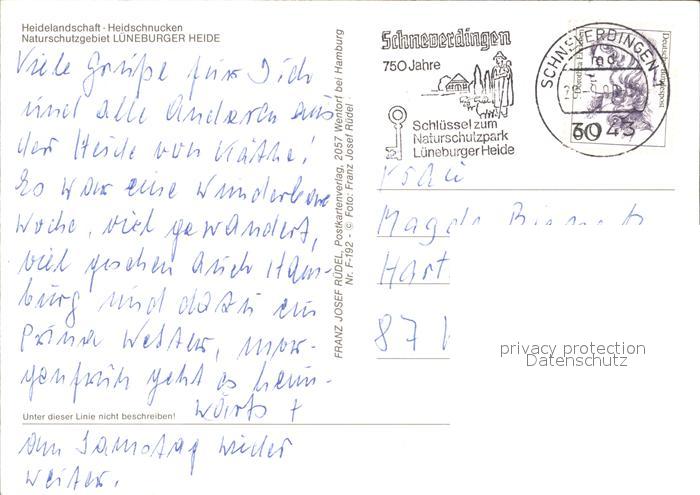 Heidelandschaft - Heidschnucken
Naturschutzgebiet LÜNEBURGER HEIDE
Viele Grüße für Dich
und alle Anderen aus
der Heide von Käthe!
Es war eine wunderbare
Woche, viel gewandert,
viel gesehen auch Ham-
burg und dazu ein
prima Wetter, mor-
genfrüh geht es heim-
Unter dieser Linie nicht beschreiben!
wärts +
am Samstag wieder
weiter.
FRANZ JOSEF RÜDEL, Postkartenverlag, 2057 Wentorf bei Hamburg
Nr. F-192 - © Foto: Franz Josef Rüdel
Schneverdingen
750 Jahre
Schlüssel zum
Naturschutzpark
Lüneburger Heide
SCHNEVERDINGEN 1
Deutsche Bundespost
3043
Frau
Magda
Hart
87
privacy protection
Datenschutz